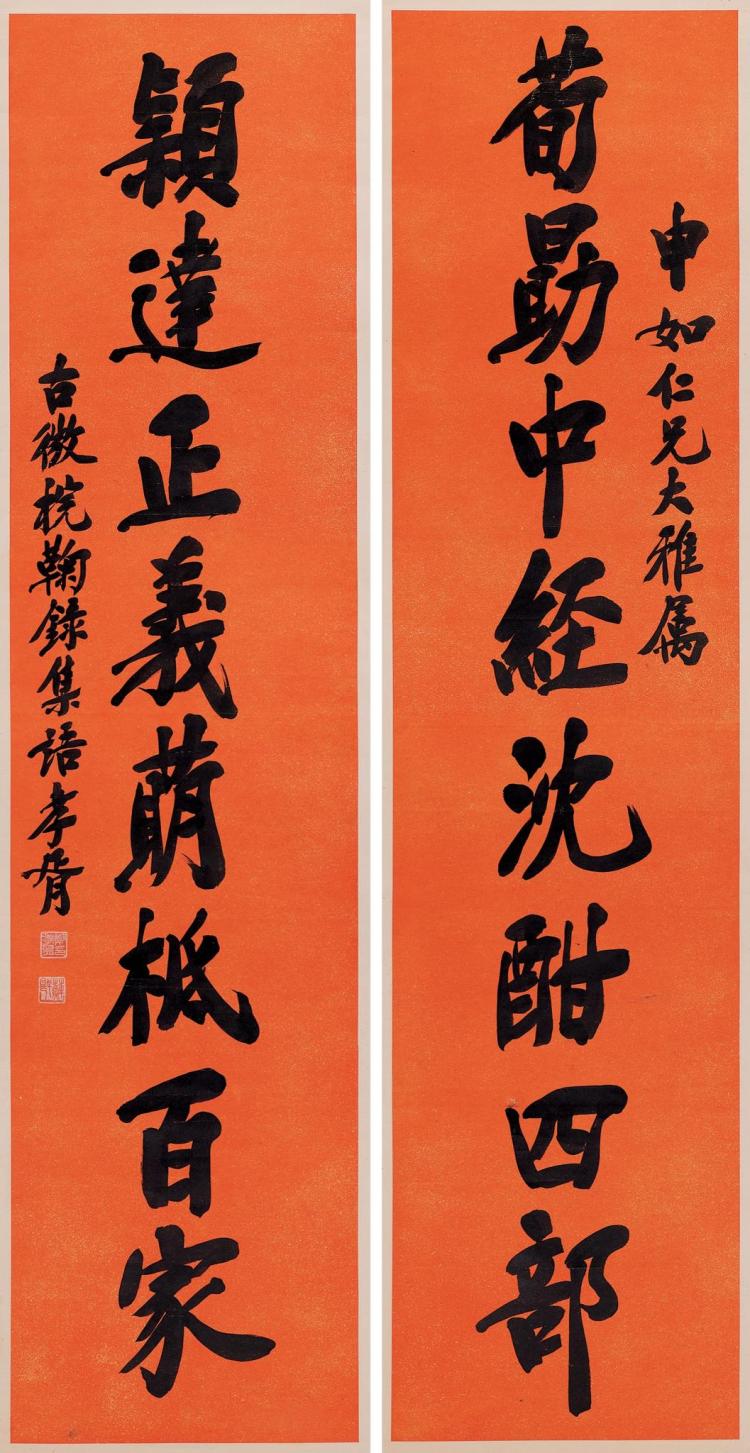 申如仁兄大雅属
荀勗中経沈酣四部
穎達正義萌柢百家
古微梡鞠録集語孝胥